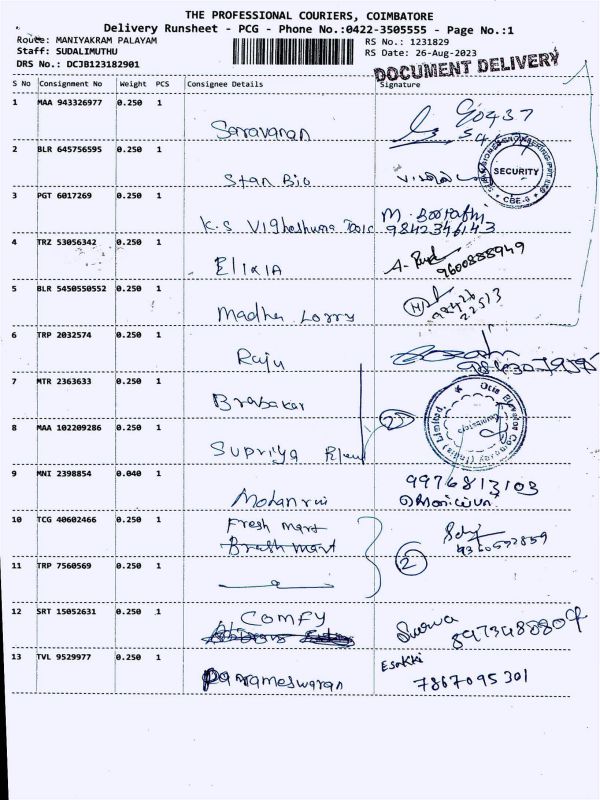 THE PROFESSIONAL COURIERS, COIMBATORE
Delivery Runsheet - PCG - Phone No.:0422-3505555 - Page No.:1
Route: MANIYAKRAM PALAYAM
RS No.: 1231829
Staff: SUDALIMUTHU
RS Date: 26-Aug-2023
DRS No.: DCJB123182901
DOCUMENT DELIVERY
S No Consignment No Weight PCS Consignee Details Signature
1 MAA 943326977 0.250 1 Saravanan
2 BLR 645756595 0.250 1 Stan Bio
SECURITY
CBE-6
3 PGT 6017269 0.250 1 K.S Vigheshwara M. Boopathi
9842346143
4 TRZ 53056342 0.250 1 Elixia A.
9600888949
5 BLR 5450550552 0.250 1 Madha Lorry
98426
22513
6 TRP 2032574 0.250 1 Raju
7 MTR 2363633 0.250 1 Brabakar
2
Otis Elevator Company (India) Limited
8 MAA 102209286 0.250 1 Supriya
9 MNI 2398854 0.040 1 9976813103
10 TCG 40602466 0.250 1 Fresh Mart
Brash mart
2
9360552859
11 TRP 7560569 0.250 1
12 SRT 15052631 0.250 1 COMFY
13 TVL 9529977 0.250 1 Parameswaran Esakki
7867095301